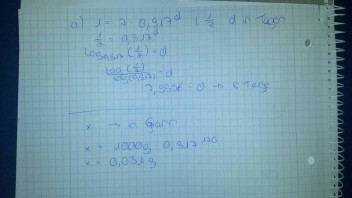 a) 1 = 2 · 0,917^d | : 2 d in Tagen
1/2 = 0,917^d
log_0,917 (1/2) = d
log(1/2) / log(0,917) = d
= d → 8 Tage
x → in Gramm
x = 1000g · 0,917^120
x = 0,031g